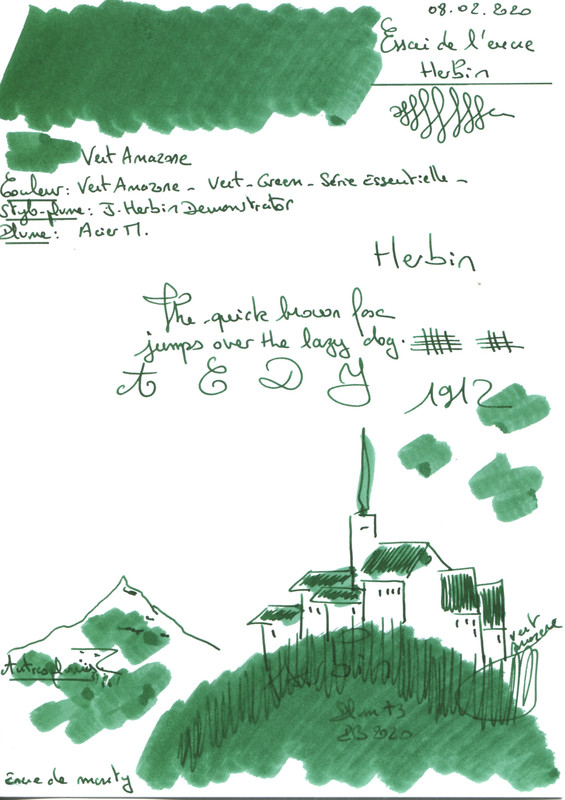 08.02.2020
Essai de l'encre
Herbin
Vert Amazone
Couleur: Vert Amazone - Vert - Green - Série Essentielle -
Stylo-plume: J. Herbin Demonstrator
Plume: Acier M.
Herbin
The quick brown fox
jumps over the lazy dog.
A E D Y
1912
vert
Amazone
Autres plumes
2020
Encre de